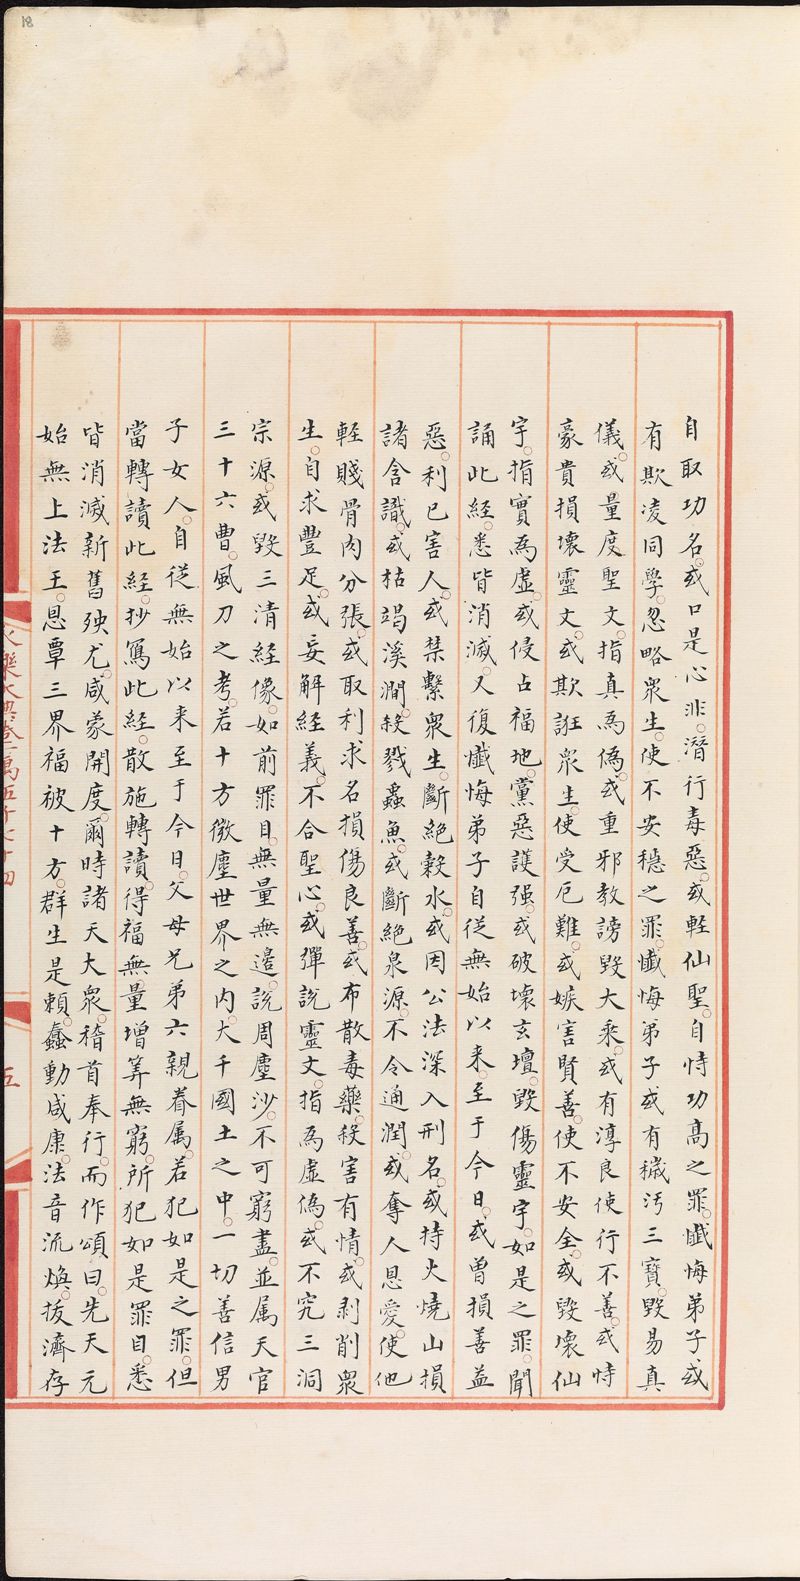 自取功名。或口是心非。潛行毒惡。或輕仙聖。自恃功高之罪。懺悔弟子或
有欺凌同學。忽略衆生。使不安穩之罪。懺悔弟子或有穢汚三寶。毀易真
儀。或量度聖文。指真爲僞。或重邪教謗毀大乘。或有淳良使行不善。或恃
豪貴損壞靈文。或欺誑衆生。使受厄難。或嫉害賢善。使不安全。或毀壞仙
宇。指實爲虛。或侵占福地。黨惡護强。或破壞玄壇。毀傷靈宇。如是之罪。聞
誦此經。悉皆消滅。又復懺悔弟子自從無始以来。至于今日。或曾損善益
惡。利已害人。或禁繫衆生。斷絕穀水。或因公法深入刑名。或持火燒山損
諸含識。或枯竭溪澗。殺戮蟲魚。或斷絕泉源。不令通潤。或奪人恩愛。使他
輕賤骨肉分張。或取利求名損傷良善。或布散毒藥。殺害有情。或剥削衆
生。自求豐足。或妄解經義。不合聖心。或彈說靈文。指爲虛僞。或不究三洞
宗源。或毀三清經像。如前罪目。無量無邊。說周塵沙。不可窮盡。並属天官
三十六曹。風刀之考。若十方微塵世界之内。大千國土之中。一切善信男
子女人。自從無始以来至于今日。父母兄弟六親眷属。若犯如是之罪。但
當轉讀此經。抄寫此經。散施轉讀。得福無量增筭無窮。所犯如是罪目。悉
皆消滅新舊殃尤。咸蒙開度。爾時諸天大衆。稽首奉行。而作頌曰。先天元
始無上法王。恩覃三界福被十方。群生是賴。蠢動咸康。法音流煥。拔濟存
五
18